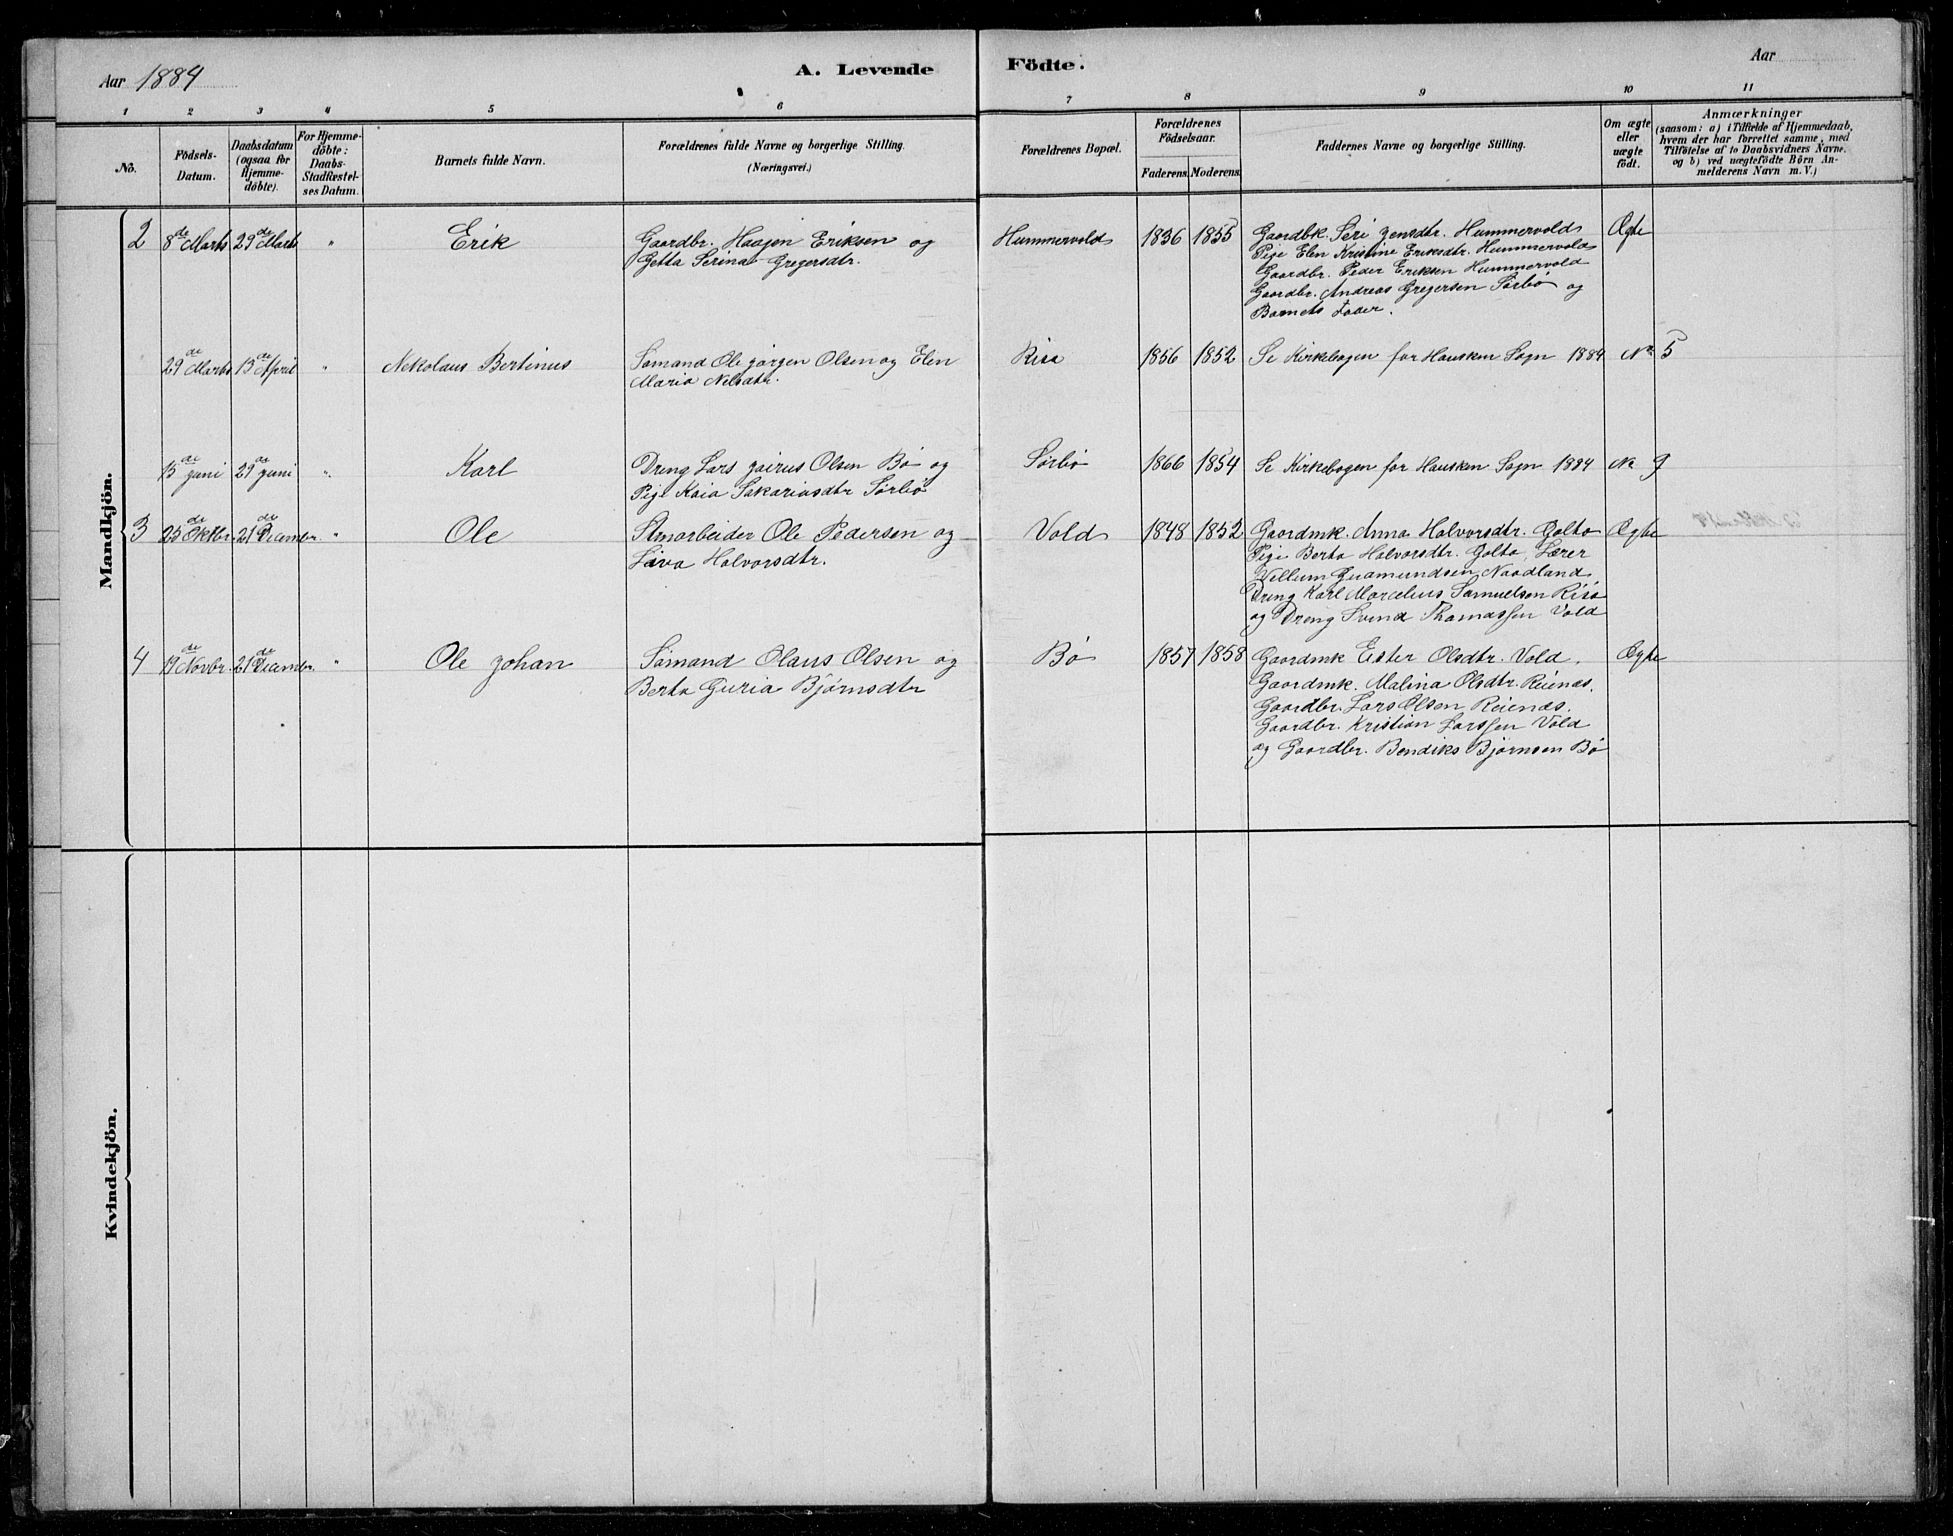 Aar 1884
A. Levende Födte.
Aar
1 2 3 4 5 6 7 8 9 10 11
No.
Födsels-
Datum.
Daabsdatum
(ogsaa for
Hjemme-
döbte).
For Hjemme-
döbte:
Daabs-
Stadfæstel-
ses Datum.
Barnets fulde Navn.
Forældrenes fulde Navne og borgerlige Stilling.
(Næringsvei.)
Forældrenes Bopæl.
Forældrenes
Födselsaar.
Faderens. Moderens.
Faddernes Navne og borgerlige Stilling.
Om ægte
eller
uægte
födt.
Anmærkninger
(saasom: a) i Tilfælde af Hjemmedaab,
hvem der har forrettet samme, med
Tilföielse af to Daabsvidners Navne.
og b) ved uægtefödte Börn An-
melderens Navn m. V.)
Mandkjön.
2 8de Marts 29de Marts " Erik
Gaardbr. Haagen Eriksen og
Getta Serina Gregersdtr.
Hummervold 1836 1855
Gaardbk. Seri Jensdtr. Hummervold
Pige Elen Kristine Eriksdtr. Hummervold
Gaardbr. Peder Eriksen Hummervold
Gaardbr. Andreas Gregersen Sørbø og
Barnets Fader.
Ægte
29de Marts 13de April " Nekolaus Bertinus
Sømand Ole Jørgen Olsen og Elen
Maria Nelsdtr.
Risa 1856 1852 Se Kirkebogen for Hausken Sogn 1884 No 5
15de Juni 29de Juni " Karl
Dreng Lars Jairus Olsen Bø og
Pige Kaia Sakariasdtr Sørbø
Sørbø 1866 1854 Se Kirkebogen for Hausken Sogn 1884 No 9
3 25de Oktbr. 21de Decembr. " Ole
Stenarbeider Ole Pedersen og
Siva Halvorsdtr.
Vold 1848 1852
Gaardmk. Anna Halvorsdtr. Golto
Pige Berta Halvorsdtr. Golto, Lærer
Villum Guamundsen Naadland,
Dreng Karl Marcelius Samuelsen Risa
og Dreng Svend Thomassen Vold
Ægte
4 19de Novbr. 21de Decembr. " Ole Johan
Sømand Olaus Olsen og
Berta Guria Bjørnsdtr
Bø 1857 1858
Gaardmk Eister Olsdtr. Vold,
Gaardmk. Malina Olsdtr. Reienæs,
Gaardbr. Lars Olsen Reienæs,
Gaardbr. Kristian Larssen Vold
og Gaardbr. Bendiks Bjørnsen Bø
Ægte
Kvindekjön.